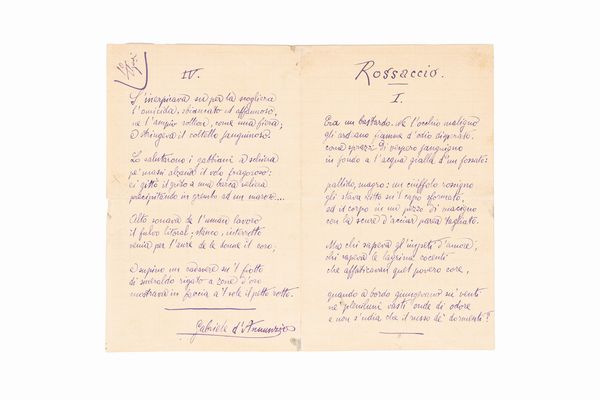 IV.
S'inerpicava su per la scogliera
l'omicida, sbiancato ed affannoso,
ne l'ampie rollioi, come una fiera;
e stringeva il coltello sanguinoso.
Lo salutarono i gabbiani a schiera
pe' massi alzando il volo fragoroso:
ei gittò il grido a una barca veliera
precipitando in grembo ad un maroso...
Alto sonava de l'umano lavoro
il fulvo litoral; stanco, interrotto
venía per l'aure de le donne il coro;
e supino un cadavere su 'l fiotto
di smeraldo rigato a zone d'oro
mostrava in faccia a 'l sole il petto rotto.
Gabriele d'Annunzio
Rossaccio.
I.
Era un bastardo. Ne l'occhio maligno
gli ardeano fiamme d'odio disperato,
come sprazzi di vespero sanguigno
in fondo a l'acqua gialla d'un fossato:
pallido, magro: un ciuffolo rosigno
gli stava ritto su 'l capo sformato;
ed il corpo in un pezzo di macigno
con la scure d'acciar parea tagliato.
Ma chi sapeva gl'impeti d'amore,
chi sapeva le lagrime cocenti
che affaticavan quel povero core,
quando a bordo giungevano su' venti
ne' plenilunî vasti onde di odore
e non s'udía che il russo de' dormenti?